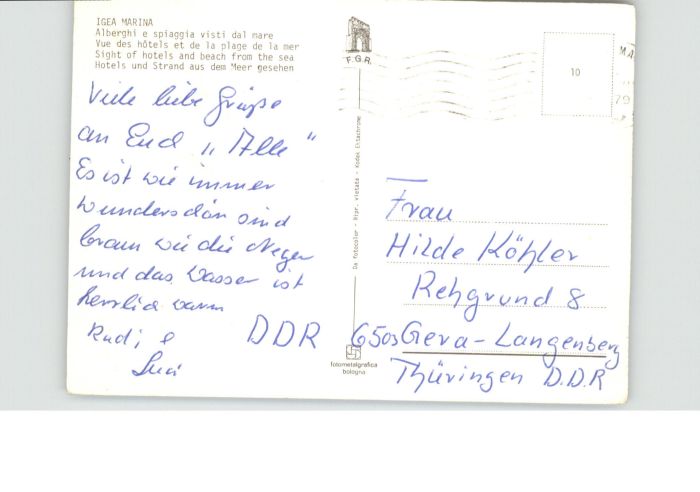 IGEA MARINA
Alberghi e spiaggia visti dal mare
Vue des hôtels et de la plage de la mer
Sight of hotels and beach from the sea
Hotels und Strand aus dem Meer gesehen
Viele liebe Grüße
an Euch "Alle"
Es ist wie immer
wunderschön sind
braun wie die Neger
und das Wasser ist
herrlich warm
Rudi &
DDR
F.G.R.
Da fotocolor - Ripr. vietata - Kodak Ektachrome
fotometalgrafica
bologna
10
MA
79
Frau
Hilde Köhler
Rehgrund 8
6503 Gera-Langenberg
Thüringen D.D.R